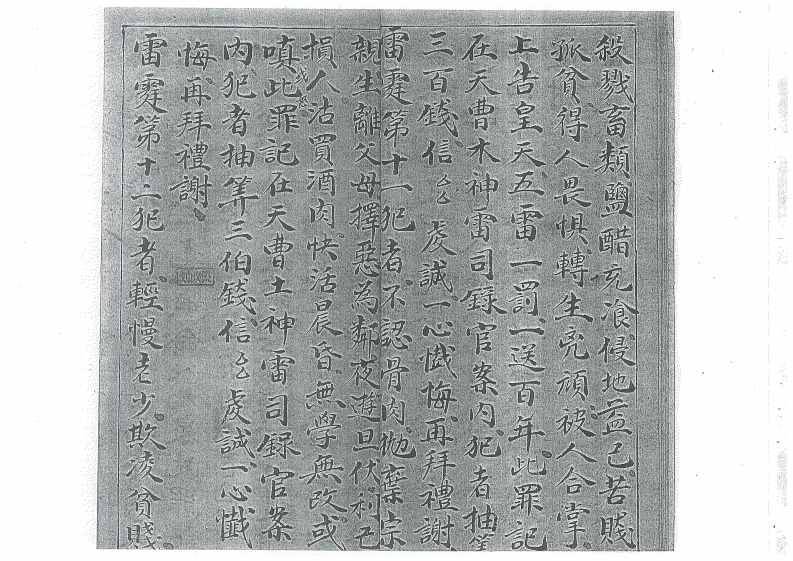 殺戮畜類鹽醋充飡侵地益己苦賤
孤貧得人畏惧轉生兇頑被人合掌
上告皇天五雷一罰一送百年此罪記
在天曹木神雷司録官案内犯者抽筭
三百錢信厶厶虔誠一心懺悔再拜禮謝
雷霆第十一犯者不認骨肉抛棄宗
親生離父母擇惡為鄰夜遊旦伏利己
損人沽買酒肉快活晨昏無學無改或
嗔此罪記在天曹土神雷司録官案
内犯者抽筭三伯錢信厶厶虔誠一心懺
悔再拜禮謝
雷霆第十二犯者輕慢老少欺凌貧賤